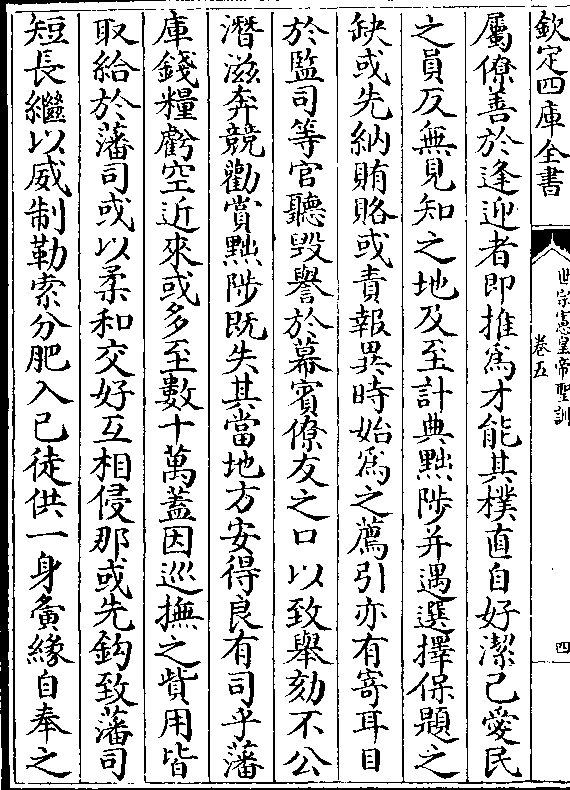 欽定四庫全書
世宗憲皇帝聖訓
卷五
四
屬僚善於逢迎者即推為才能其樸直自好潔己愛民
之員反無見知之地及至計典黜陟并遇選擇保題之
缺或先納賄賂或責報異時始為之薦引亦有寄耳目
於監司等官聽毀譽於幕賓僚友之口以致舉劾不公
潛滋奔競勸賞黜陟既失其當地方安得良有司乎藩
庫錢糧虧空近來或多至數十萬蓋因巡撫之貲用皆
取給於藩司或以柔和交好互相侵那或先鈎致藩司
短長繼以威制勒索分肥入己徒供一身夤緣自奉之